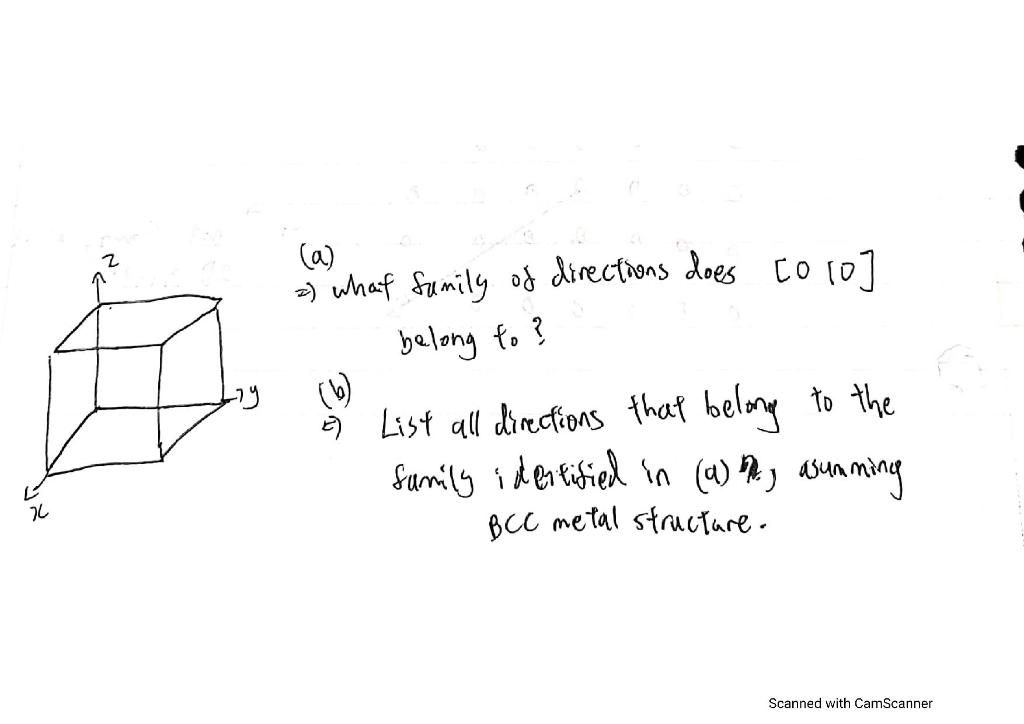 z
(a)
=) what family of directions does [010]
belong to ?
y
(b)
=) List all directions that belong to the
family identified in (a) , asumming
x
BCC metal structure.
Scanned with CamScanner